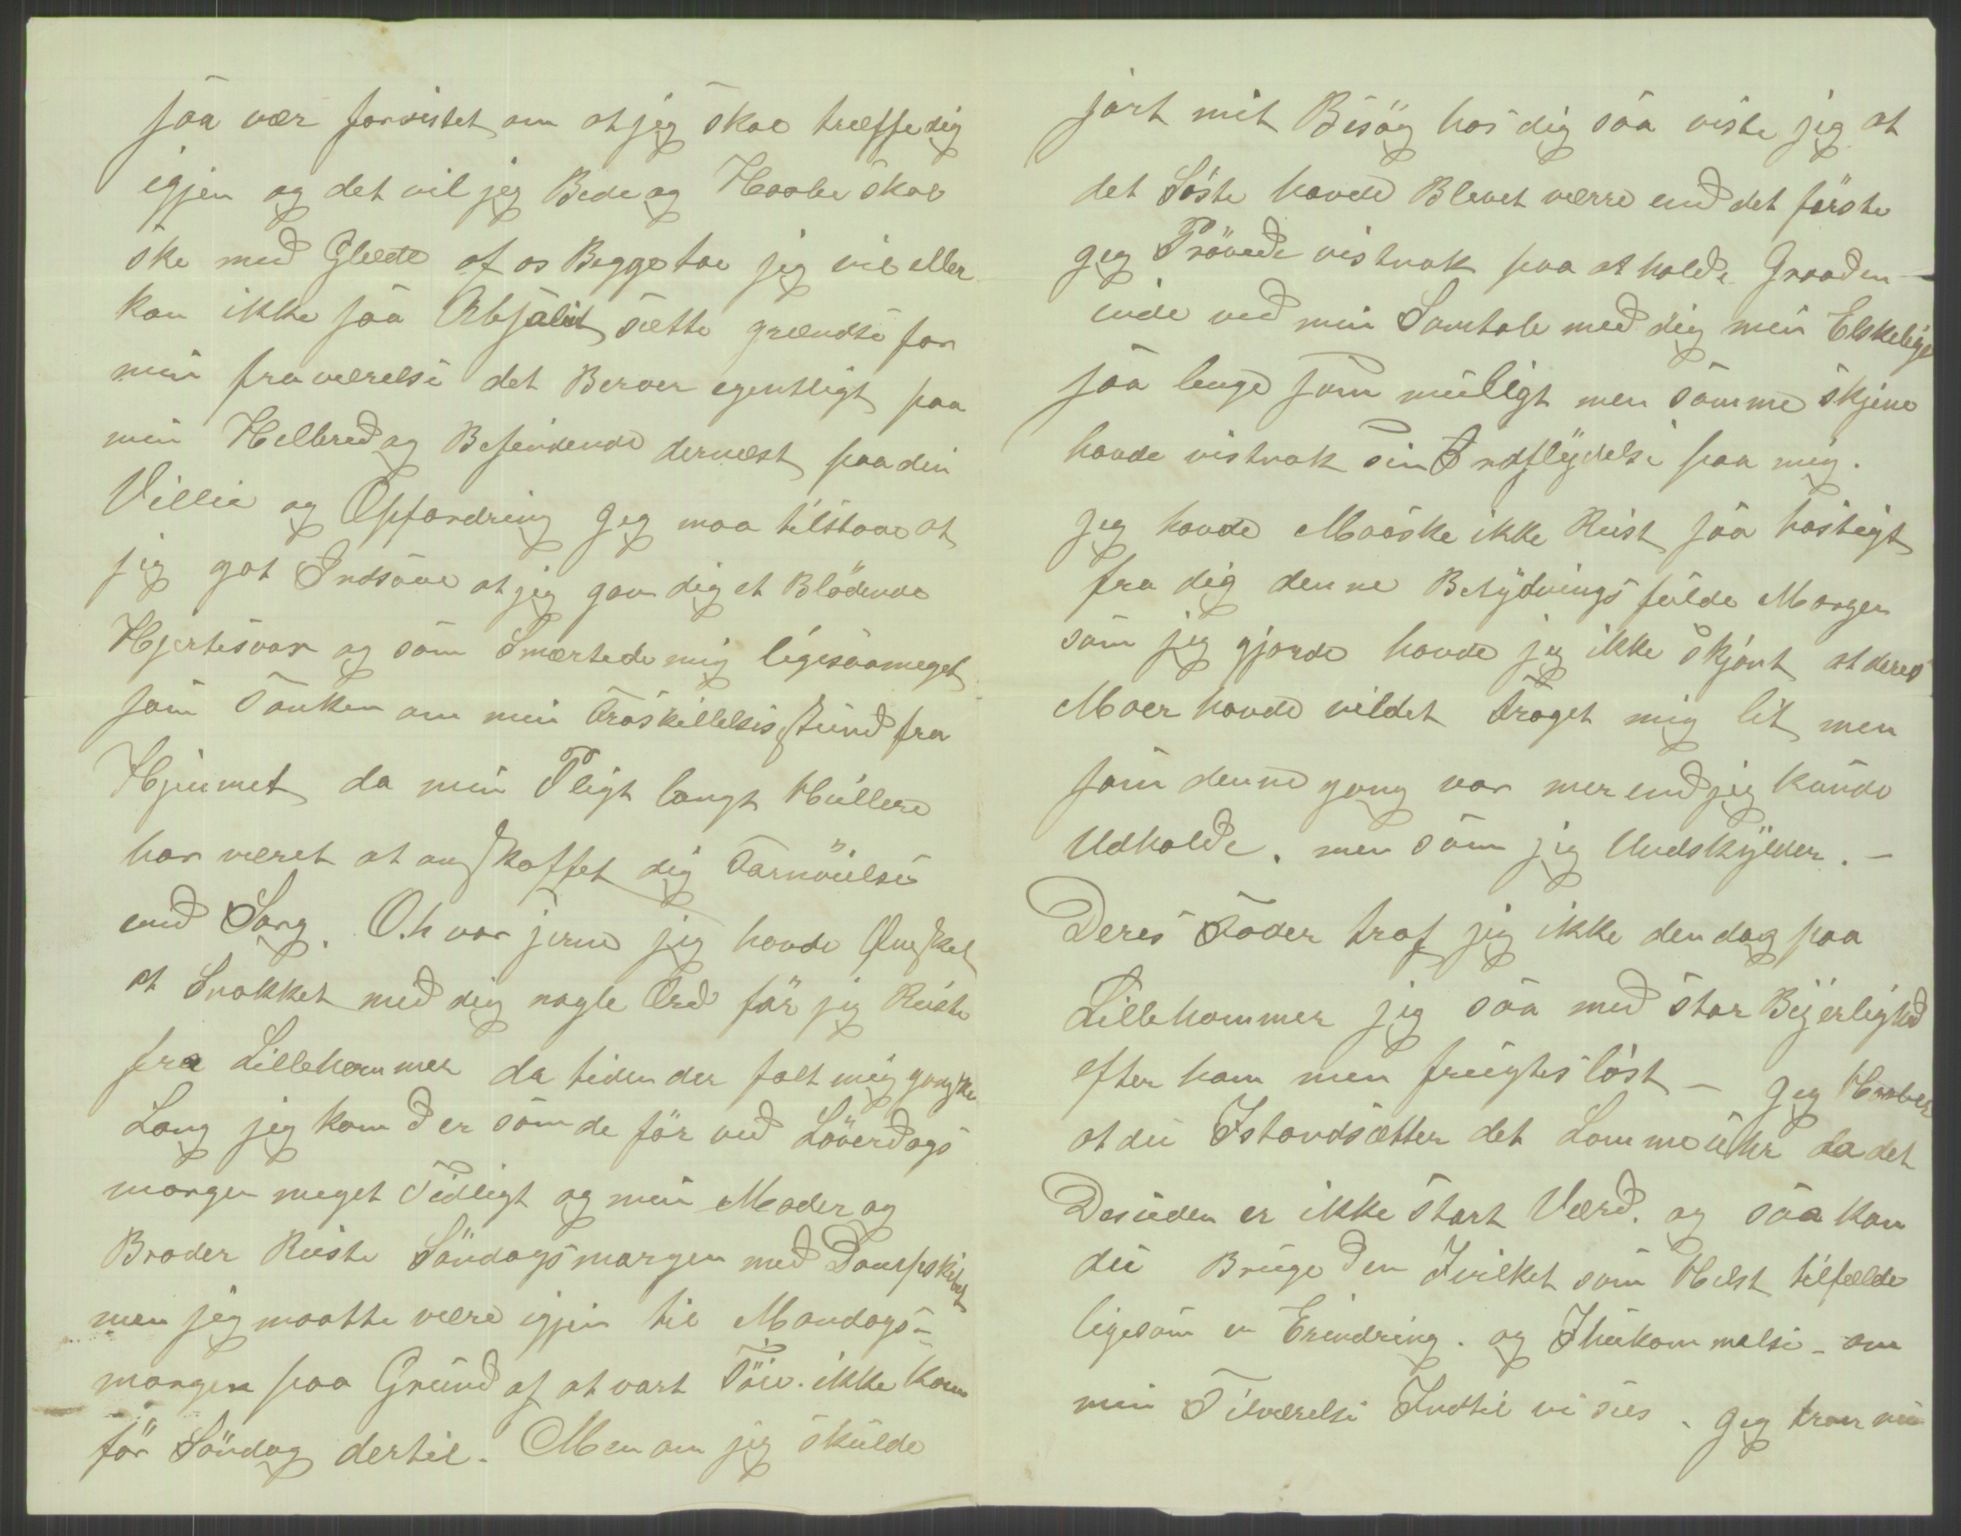 saa vær forvistet om at jeg skal træffe dig
igjen og det vil jeg Bede og Haabe skal
ske med Glæde af os Begge to jeg vil eller
kan ikke saa Absalut sætte grændse for
min fraværelse det Beroer egentligt paa
min Helbred og Befindende dernæst paa din
Villie og Opfordring Jeg maa tilstaae at
jeg got Indsaae at jeg gav dig et Blödende
Hjertesaar og som Smærtede mig ligesaameget
som Tanken om min Adskillelses stund fra
Hjemmet da min Pligt langt Hellere
har været at anskaffet dig Fornöielse
end Sorg. O. hvor jerne jeg havde Ønsket
at Snakket med dig nogle Ord för jeg Reiste
fra Lillehammer da tiden der falt mig ganske
Lang jeg kom der som de för ved Löverdags
morgen meget Tidligt og min Moder og
Broder Reiste Söndagsmorgen med Dampskibet
men jeg maatte være igjen til Mandags-
morgen paa Grund af at vart Töi. ikke kom
för Söndag dertil. Men om jeg skulde
jort mit Besög hos dig saa viste jeg at
det Siste havde Blevet værre end det förste
Jeg Prövede vistnok paa at holde Graaden -
inde ved min Samtale med dig min Elskelige
saa lenge som muligt men samme skjene
havde vistnok sin Indflydelse paa mig.
Jeg havde Maaske ikke Reist saa hastigt
fra dig denne Betydnings fulde Morgen
som jeg gjorde havde jeg ikke skjönt at deres
Moer havde vildet Fraget mig lit men
som denne gang var mer end jeg kunde
Udholde. men som jeg Undskylder. -
Deres Fader traf jeg ikke den dag paa
Lillehammer jeg saa med stor Bejerlighed
efter ham men frugtesløst - Jeg Haaber
at du Istandsætter det Lommeuhr da det
Desuden er ikke stort Værd. og saa kan
du Bruge den Ivilket som Helst tilfælde
ligesom en Erindring. og Ihukommelse - om
min Tilværelse Indtil vi sees. Jeg troer nu